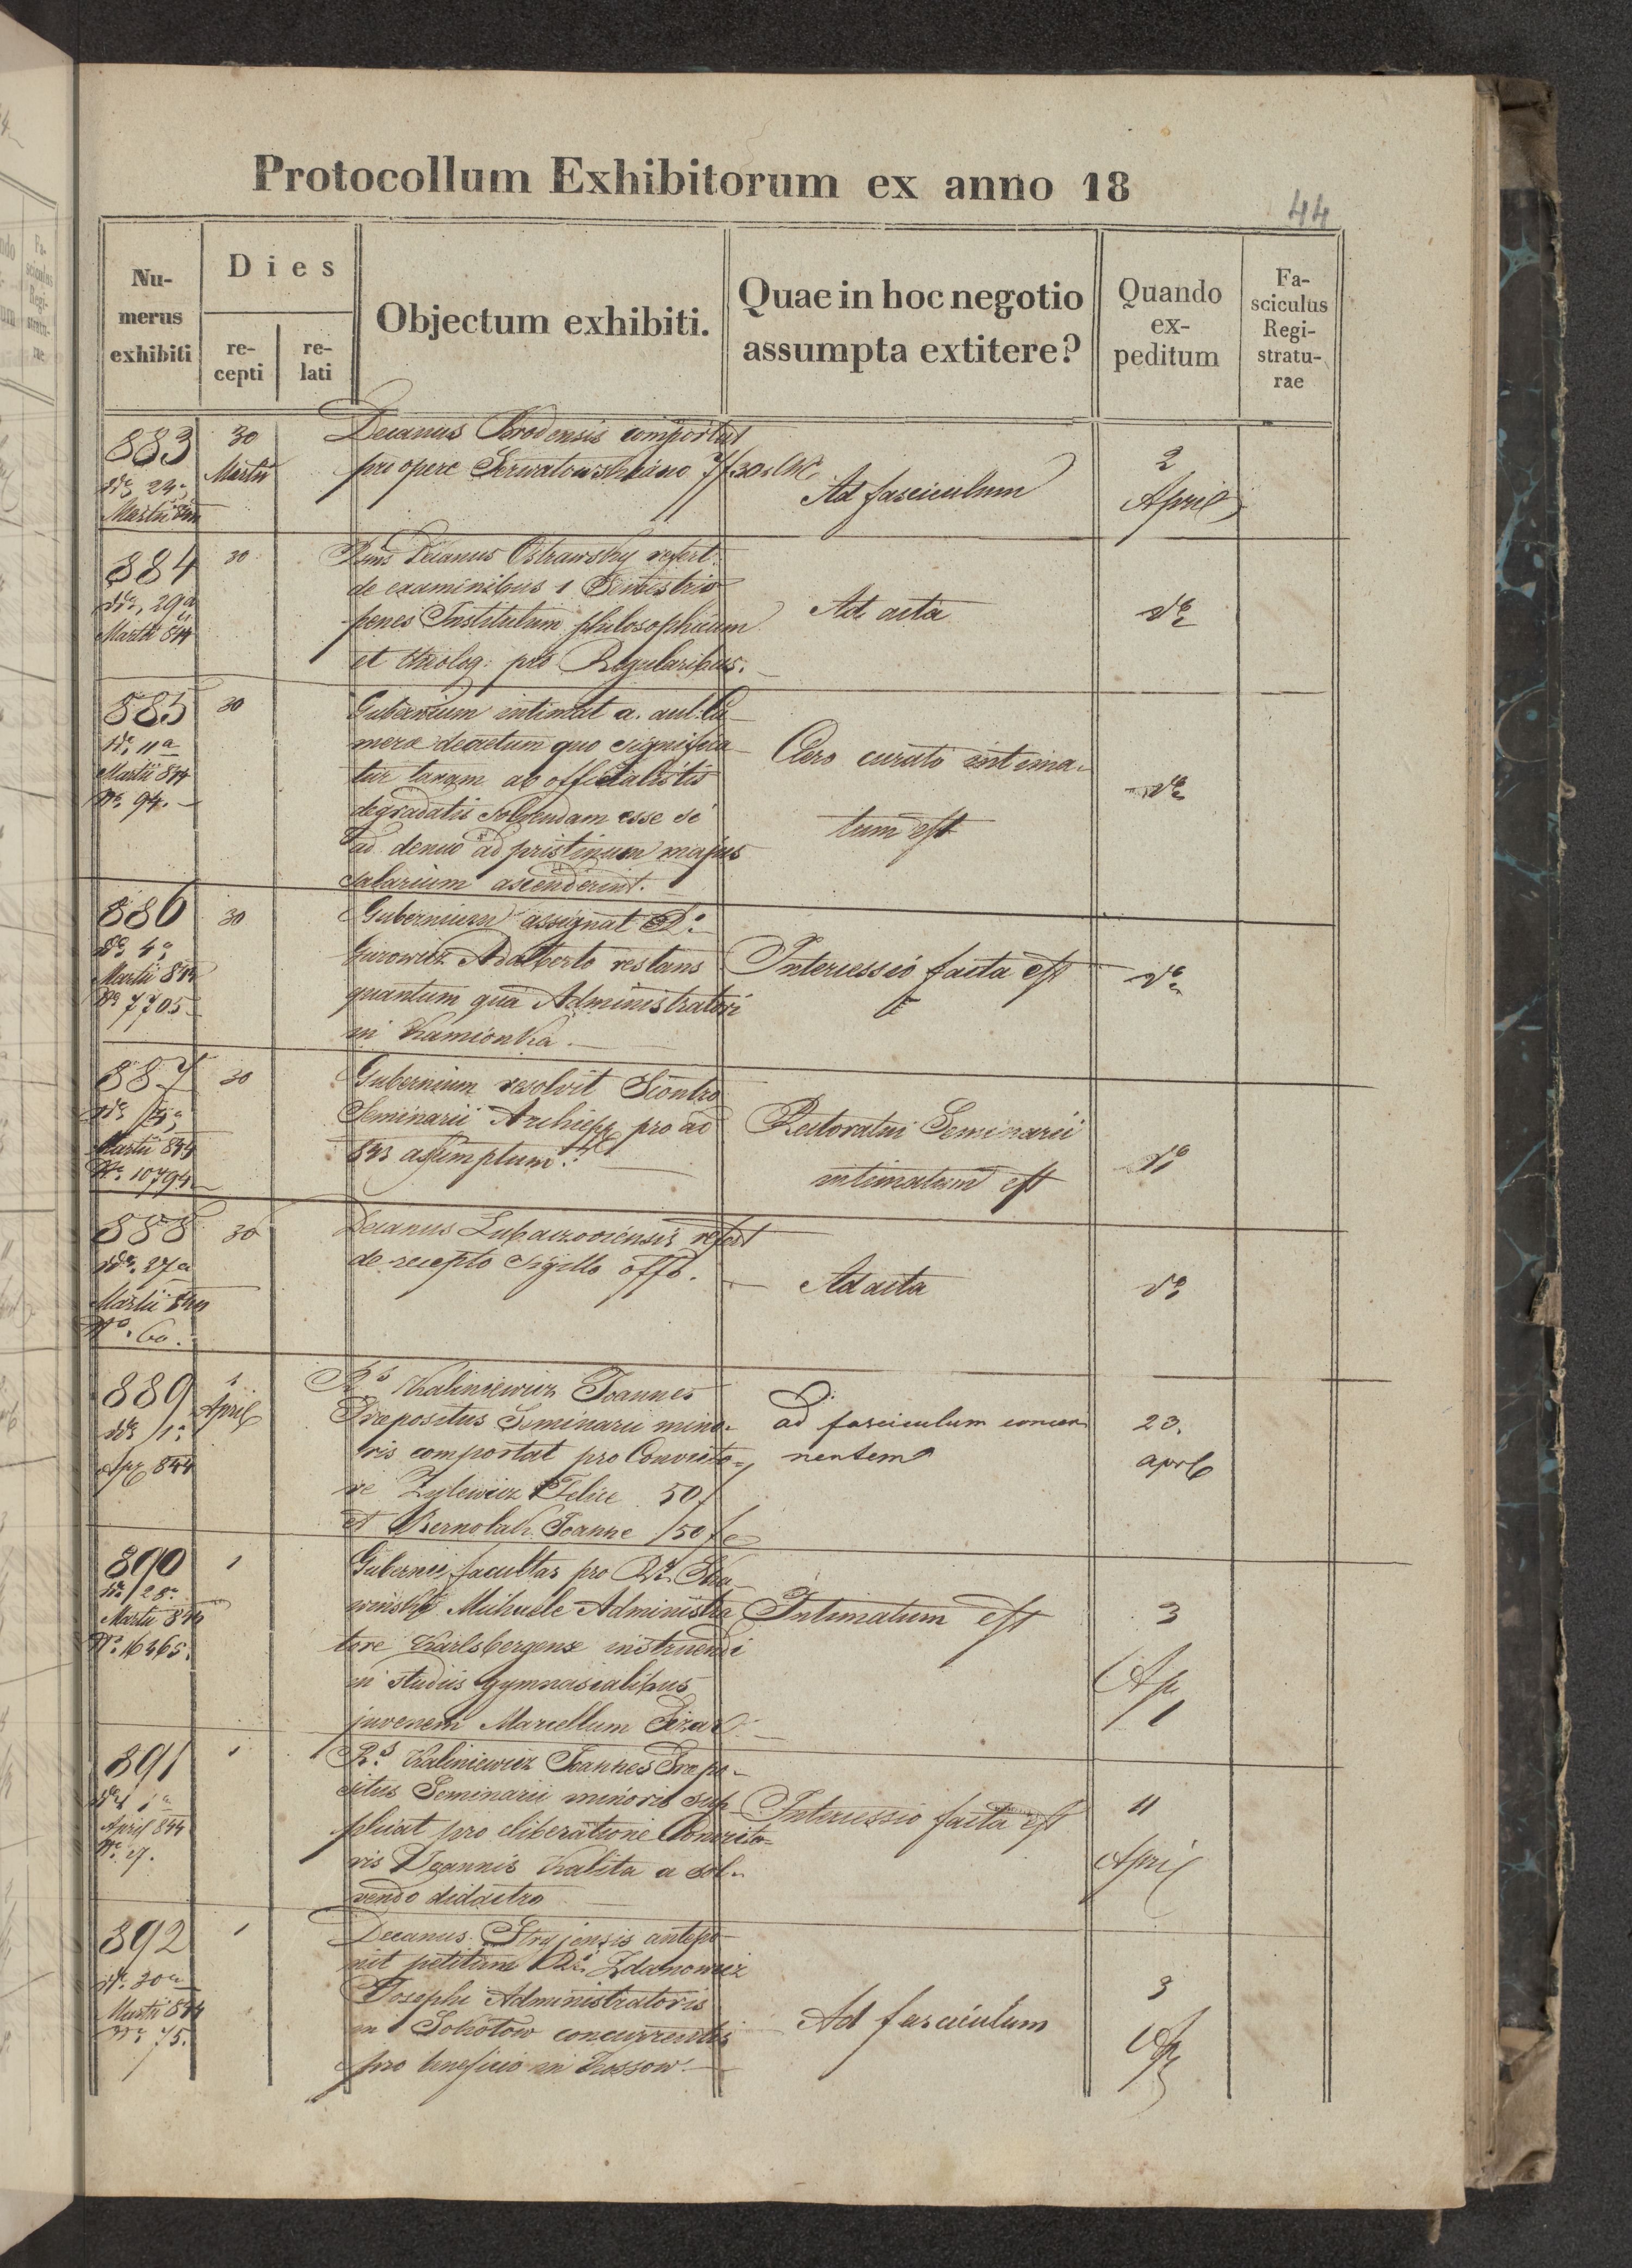 Protocollum Exhibitorum ex anno 18
44
Nu-
merus
exhibiti
Dies
re-
cepti
re-
lati
Objectum exhibiti.
Quae in hoc negotio
assumpta extitere?
Quando
ex-
peditum
Fa-
sciculus
Regi-
stratu-
rae
883
30
Martii
Decanus Brodensis comportat
pro opere
Ad fasciculum
2
April
884
30
29a
Martii 844
Decanus Ostrawsky refert
de examinibus 1 Semestris
penes Institutum philosophicum
et theolog: pro Regularibus.
Ad acta
885
30
11a
Martii 844
No. 94.
Gubernium intimat a. aul: Ca-
merae decretum quo significa-
tur taxam ab officialistis
degradatis solvendam esse si
ad denuo ad pristinum majus
salarium ascenderint.
Clero curato intima-
tum est
886
30
Martii 844
No 7705
Gubernium assignat
Adalberto restans
quantum qua Administratori
in Kamionka.
Intercessio facta est
887
30
Martii 844
No. 10794
Gubernium resolvit Scontro
Seminarii Archiepp pro ao
843 assumptum.
Rectoratui Seminarii
intimatum est
888
30
27a
Martii 844
No. 60.
Decanus Lubaczoviensis refert
de recepto sigillo offo.
Ad acta
889
1
April
844
Rs Kaliniewicz Joannes
Praepositus Seminarii mino-
ris comportat pro Convicto-
re Felice 50 f
et Bernolak Joanne 50 f
ad fasciculum concer-
nentem
23.
april
890
1
Martii 844
No. 16365.
Gubernii facultas pro
Michaele Administra
tore Karlsbergense instruendi
in studiis gymnasialibus
juvenem Marcellum
Intimatum est
3
Ap
891
1
April 844
No. 27.
Rs. Kaliniewicz Joannes Praepo-
situs Seminarii minoris sup-
plicat pro eliberatione Convicto-
ris Joannis Kalita a sol-
vendo didactro
Intercessio facta est
11
April
892
1
30a
Martii 844
No 75.
Decanus Stryjensis antepo-
nit petitum Zdanowicz
Josephi Administratoris
in Sokolow concurrentis
pro beneficio in Kossow.
Ad fasciculum
3
Ap